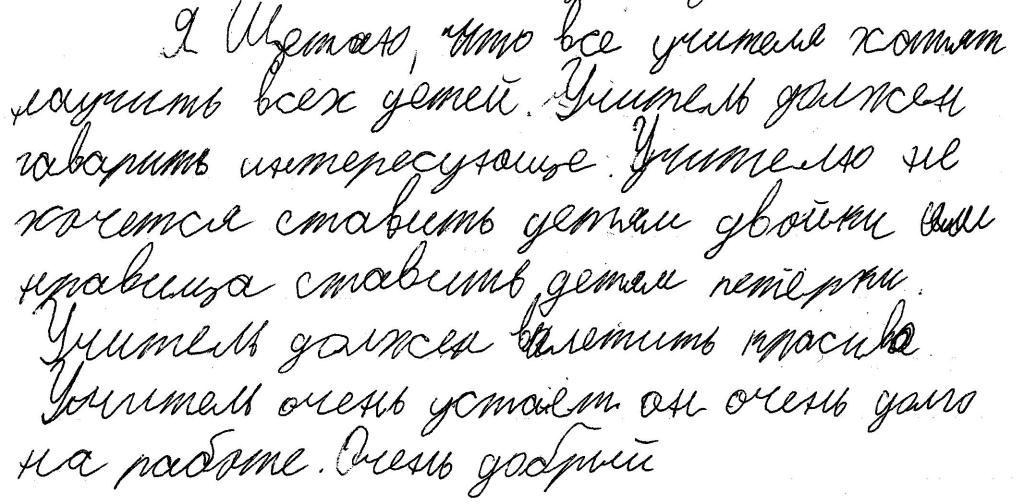 Я Щетаю, что все учителя хатят
научить всех детей. Учитель должен
гаварить интересующе. Учителю не
хочется ставить детям двойки им
нравица ставить детям петёрки.
Учитель должен выглетить красиво
Учитель очень устаёт он очень долго
на работе. Очень добрый